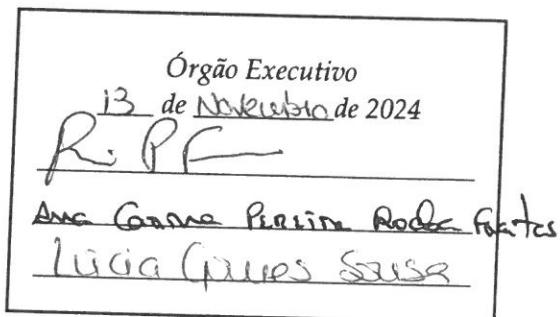 Órgão Executivo
13 de Novembro de 2024
Ana Carina Pereira Rocha Fontes
Lúcia Gomes Sousa